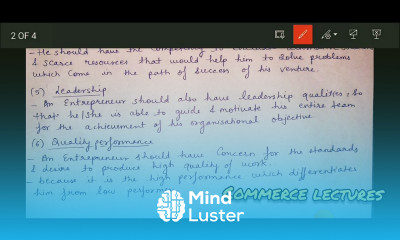 2 OF 4
- He should have the
& scarce resources that would help him to solve problems
which come in the path of success of his venture.
(5) Leadership
- An Entrepreneur should also have leadership qualities, So
that he/she is able to guide & motivate his entire team
for the achievement of his organisational objective
(6) Quality performance
- An Entrepreneur should have Concern for the standards
& desire to produce high quality of work.
- because it is the high performance which differentiates
him from low perform
COMMERCE LECTURES
Mind
Luster